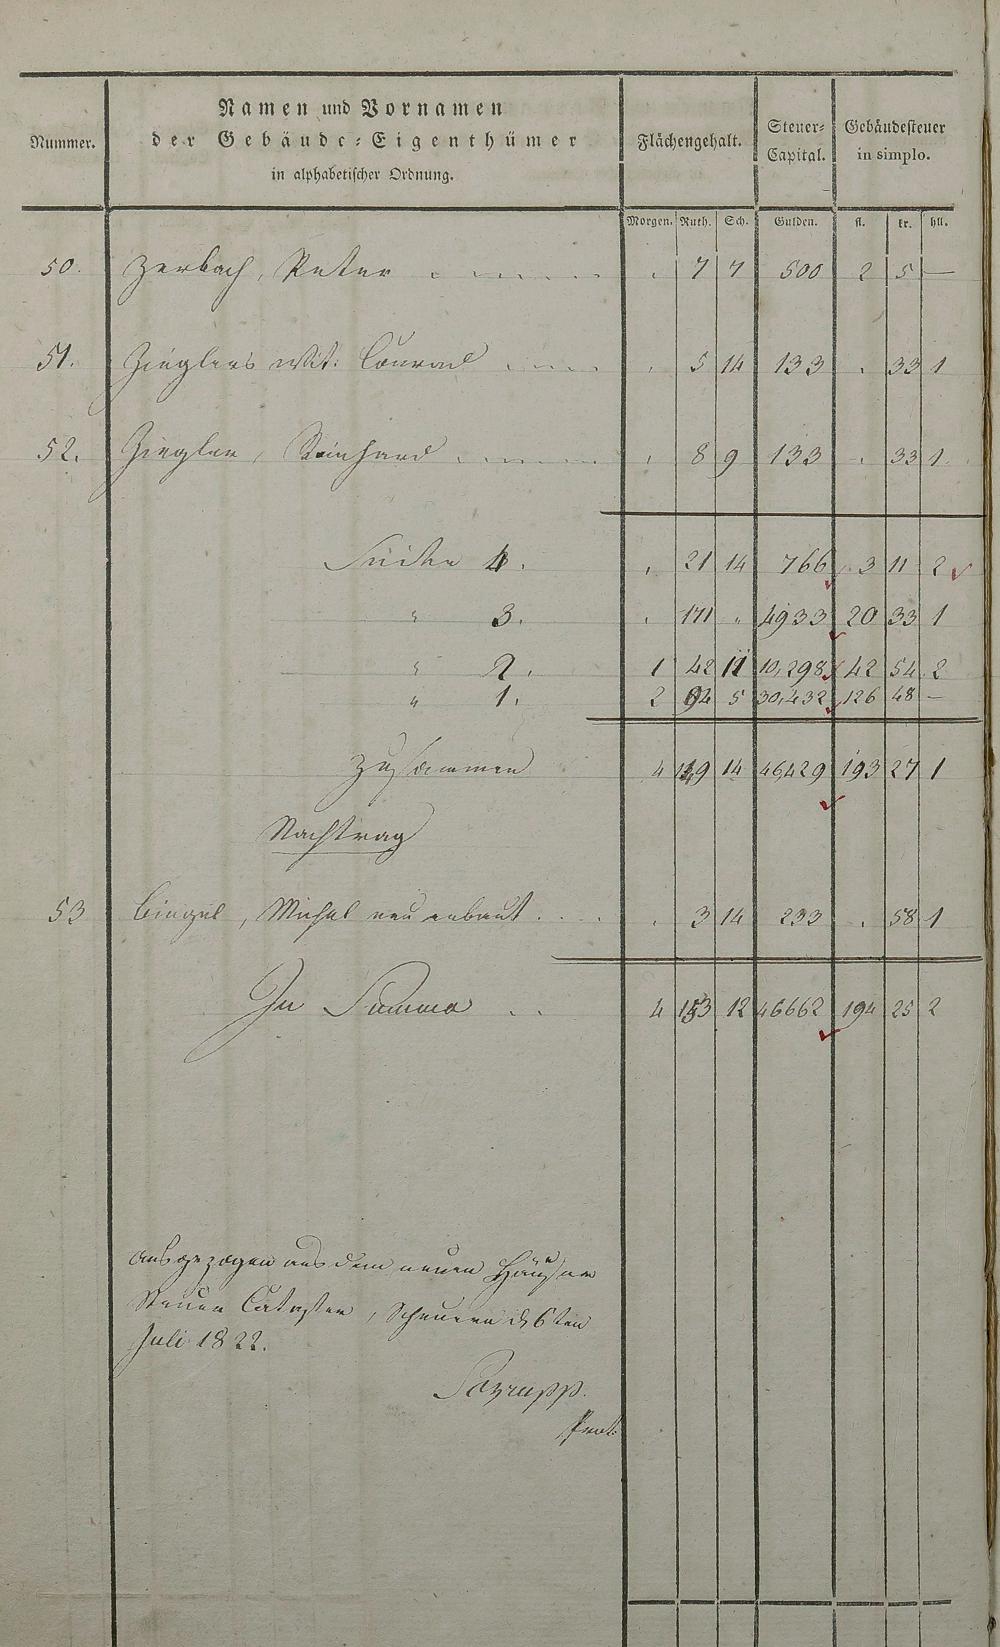 Nummer.
Namen und Vornamen
der Gebäude-Eigenthümer
in alphabetischer Ordnung.
Flächengehalt.
Steuer-
Capital.
Gebäudesteuer
in simplo.
Morgen. Ruth. Sch. Gulden. fl. kr. hll.
50. Zerbach, Peter . 7 7 500 2 5 —
51. Zieglers Wit: Conrad . 5 14 133 . 33 1
52. Ziegler, Reinhard . 8 9 133 . 33 1
Seite 4. . 21 14 766 3 11 2
" 3. . 171 " 4933 20 33 1
" 2. 1 42 11 10,298 42 54 2
" 1. 2 94 5 30,432 126 48 —
Zusammen 4 149 14 46,429 193 27 1
Nachtrag
53 Bingel, Michel neu erbaut . 3 14 233 . 58 1
In Summa 4 153 12 46662 194 25 2
ausgezogen aus dem neuen Häuser
Steuer Cataster, Scheuern d 6ten
Juli 1822.